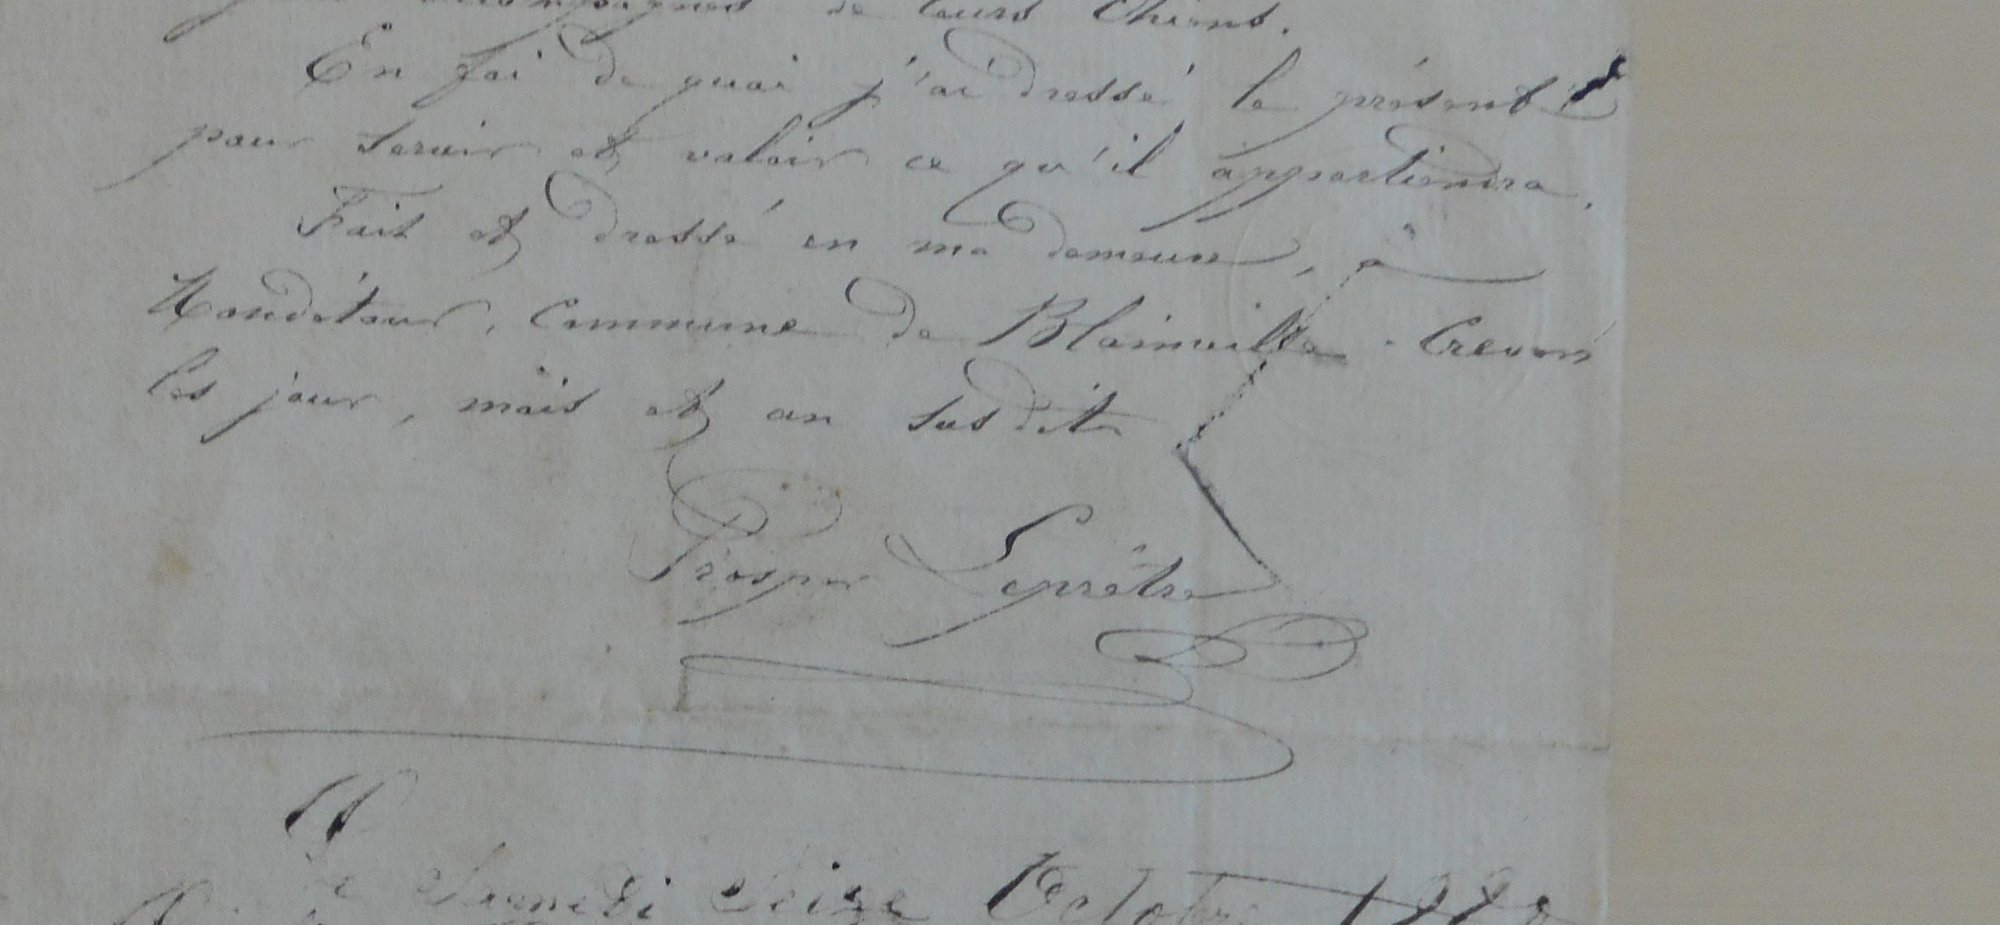 accompagnés de leurs chiens.
En foi de quoi j'ai dressé le présent
pour servir et valoir ce qu'il appartiendra.
Fait et dressé en ma demeure, à
Mondétour, Commune de Blainville-Crevon
les jour, mois et an susdit
Prosper Leprêtre
Le Samedi Seize Octobre